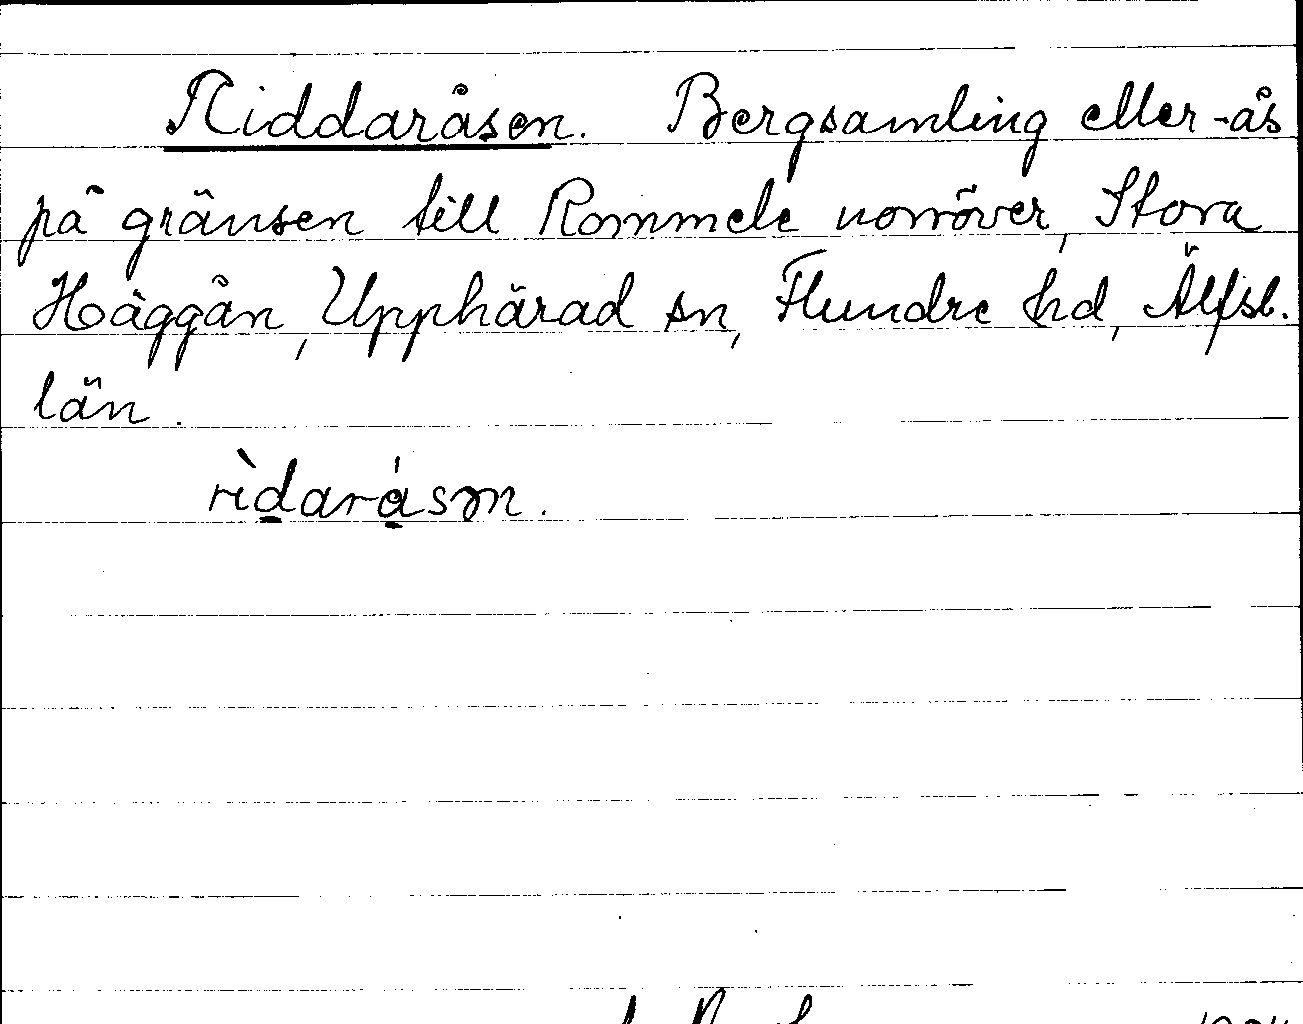 Riddaråsen. Bergsamling eller -ås
på gränsen till Rommele norröver, Stora
Häggån, Upphärad sn, Flundre hd, Älfsb.
län.
rìdaråsən.